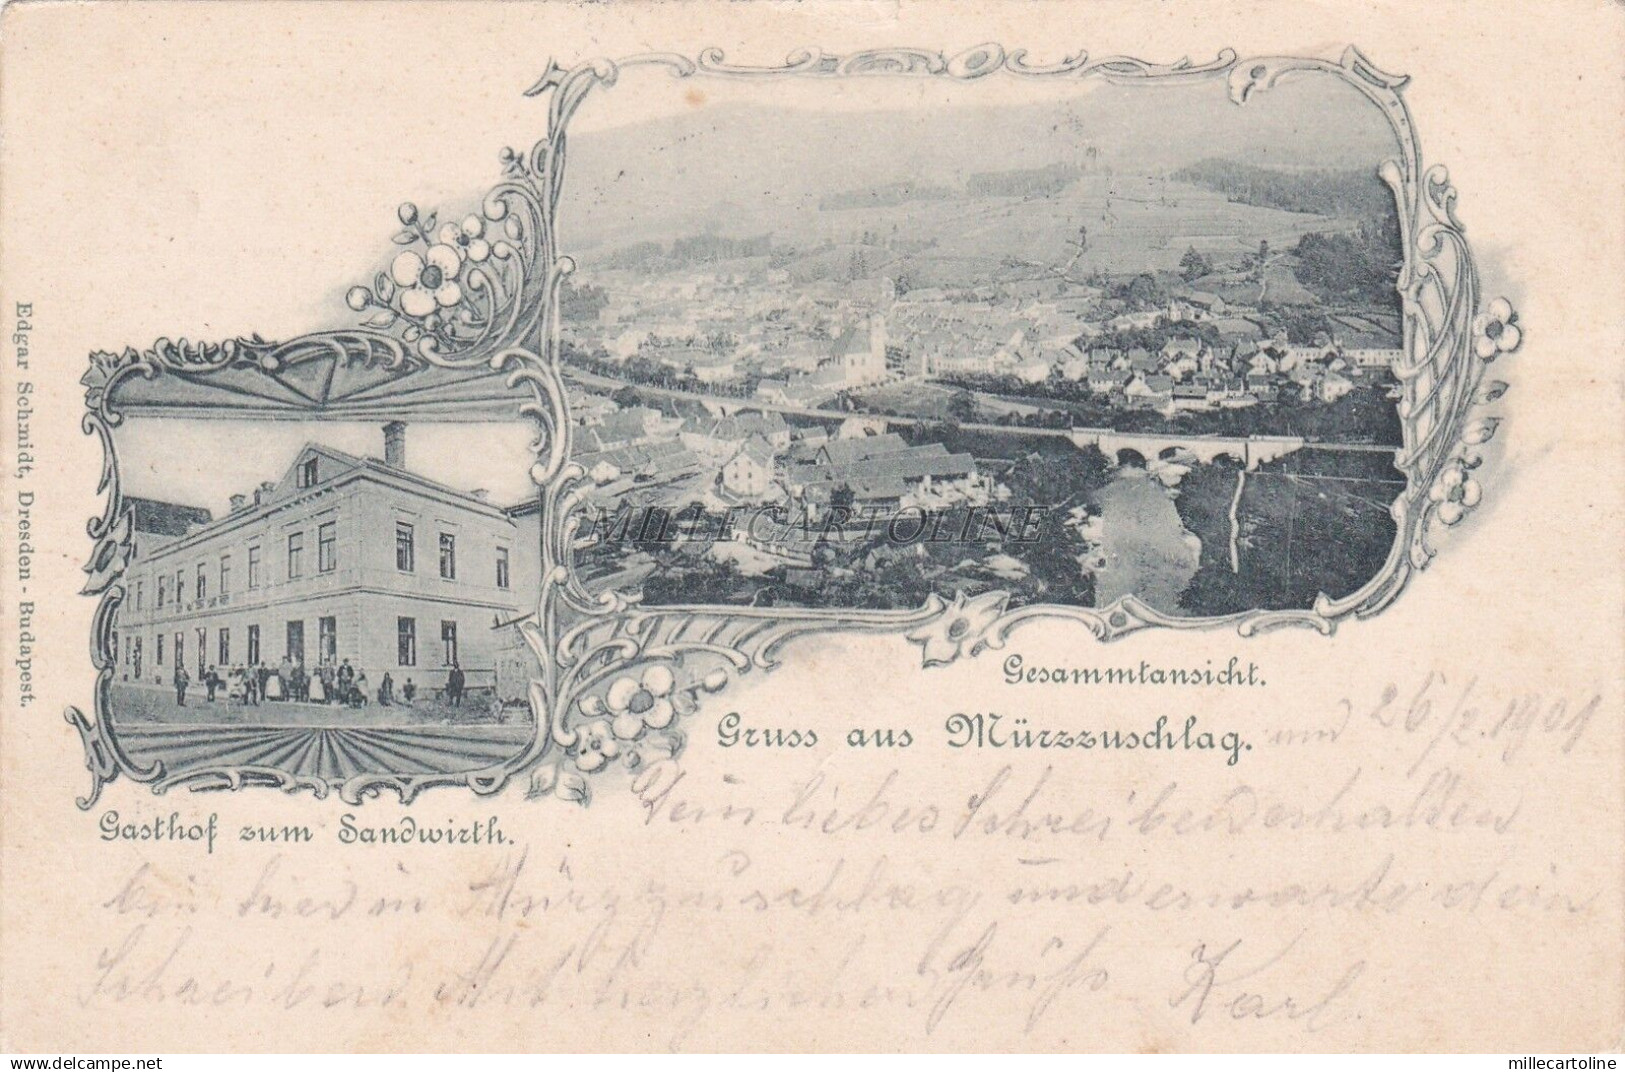 Edgar Schmidt, Dresden - Budapest.
MILLECARTOLINE
Gesammtansicht.
Gruss aus Mürzzuschlag. 26/2. 1901
Gasthof zum Sandwirth.
Dein liebes Schreiben erhalten
bin hier in Mürzzuschlag und erwarte dein
Schreiben. Mit herzlichen Grüßen Karl
delcampe.net
millecartoline